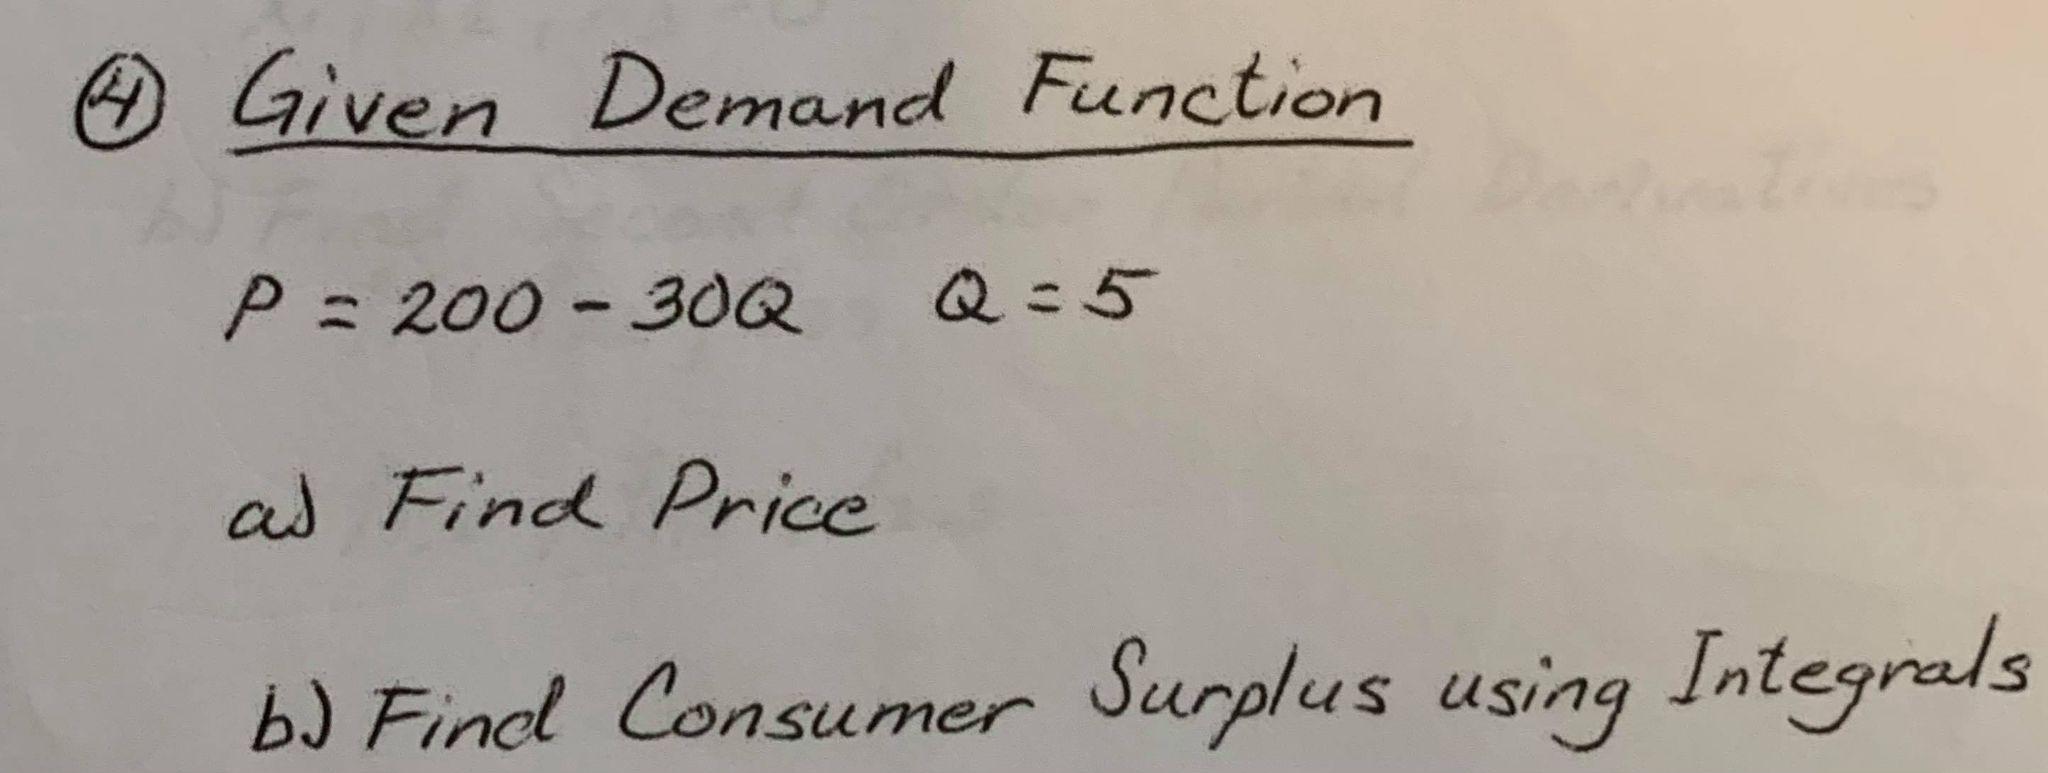 ④ Given Demand Function
P = 200 - 30Q Q = 5
a) Find Price
b) Find Consumer Surplus using Integrals